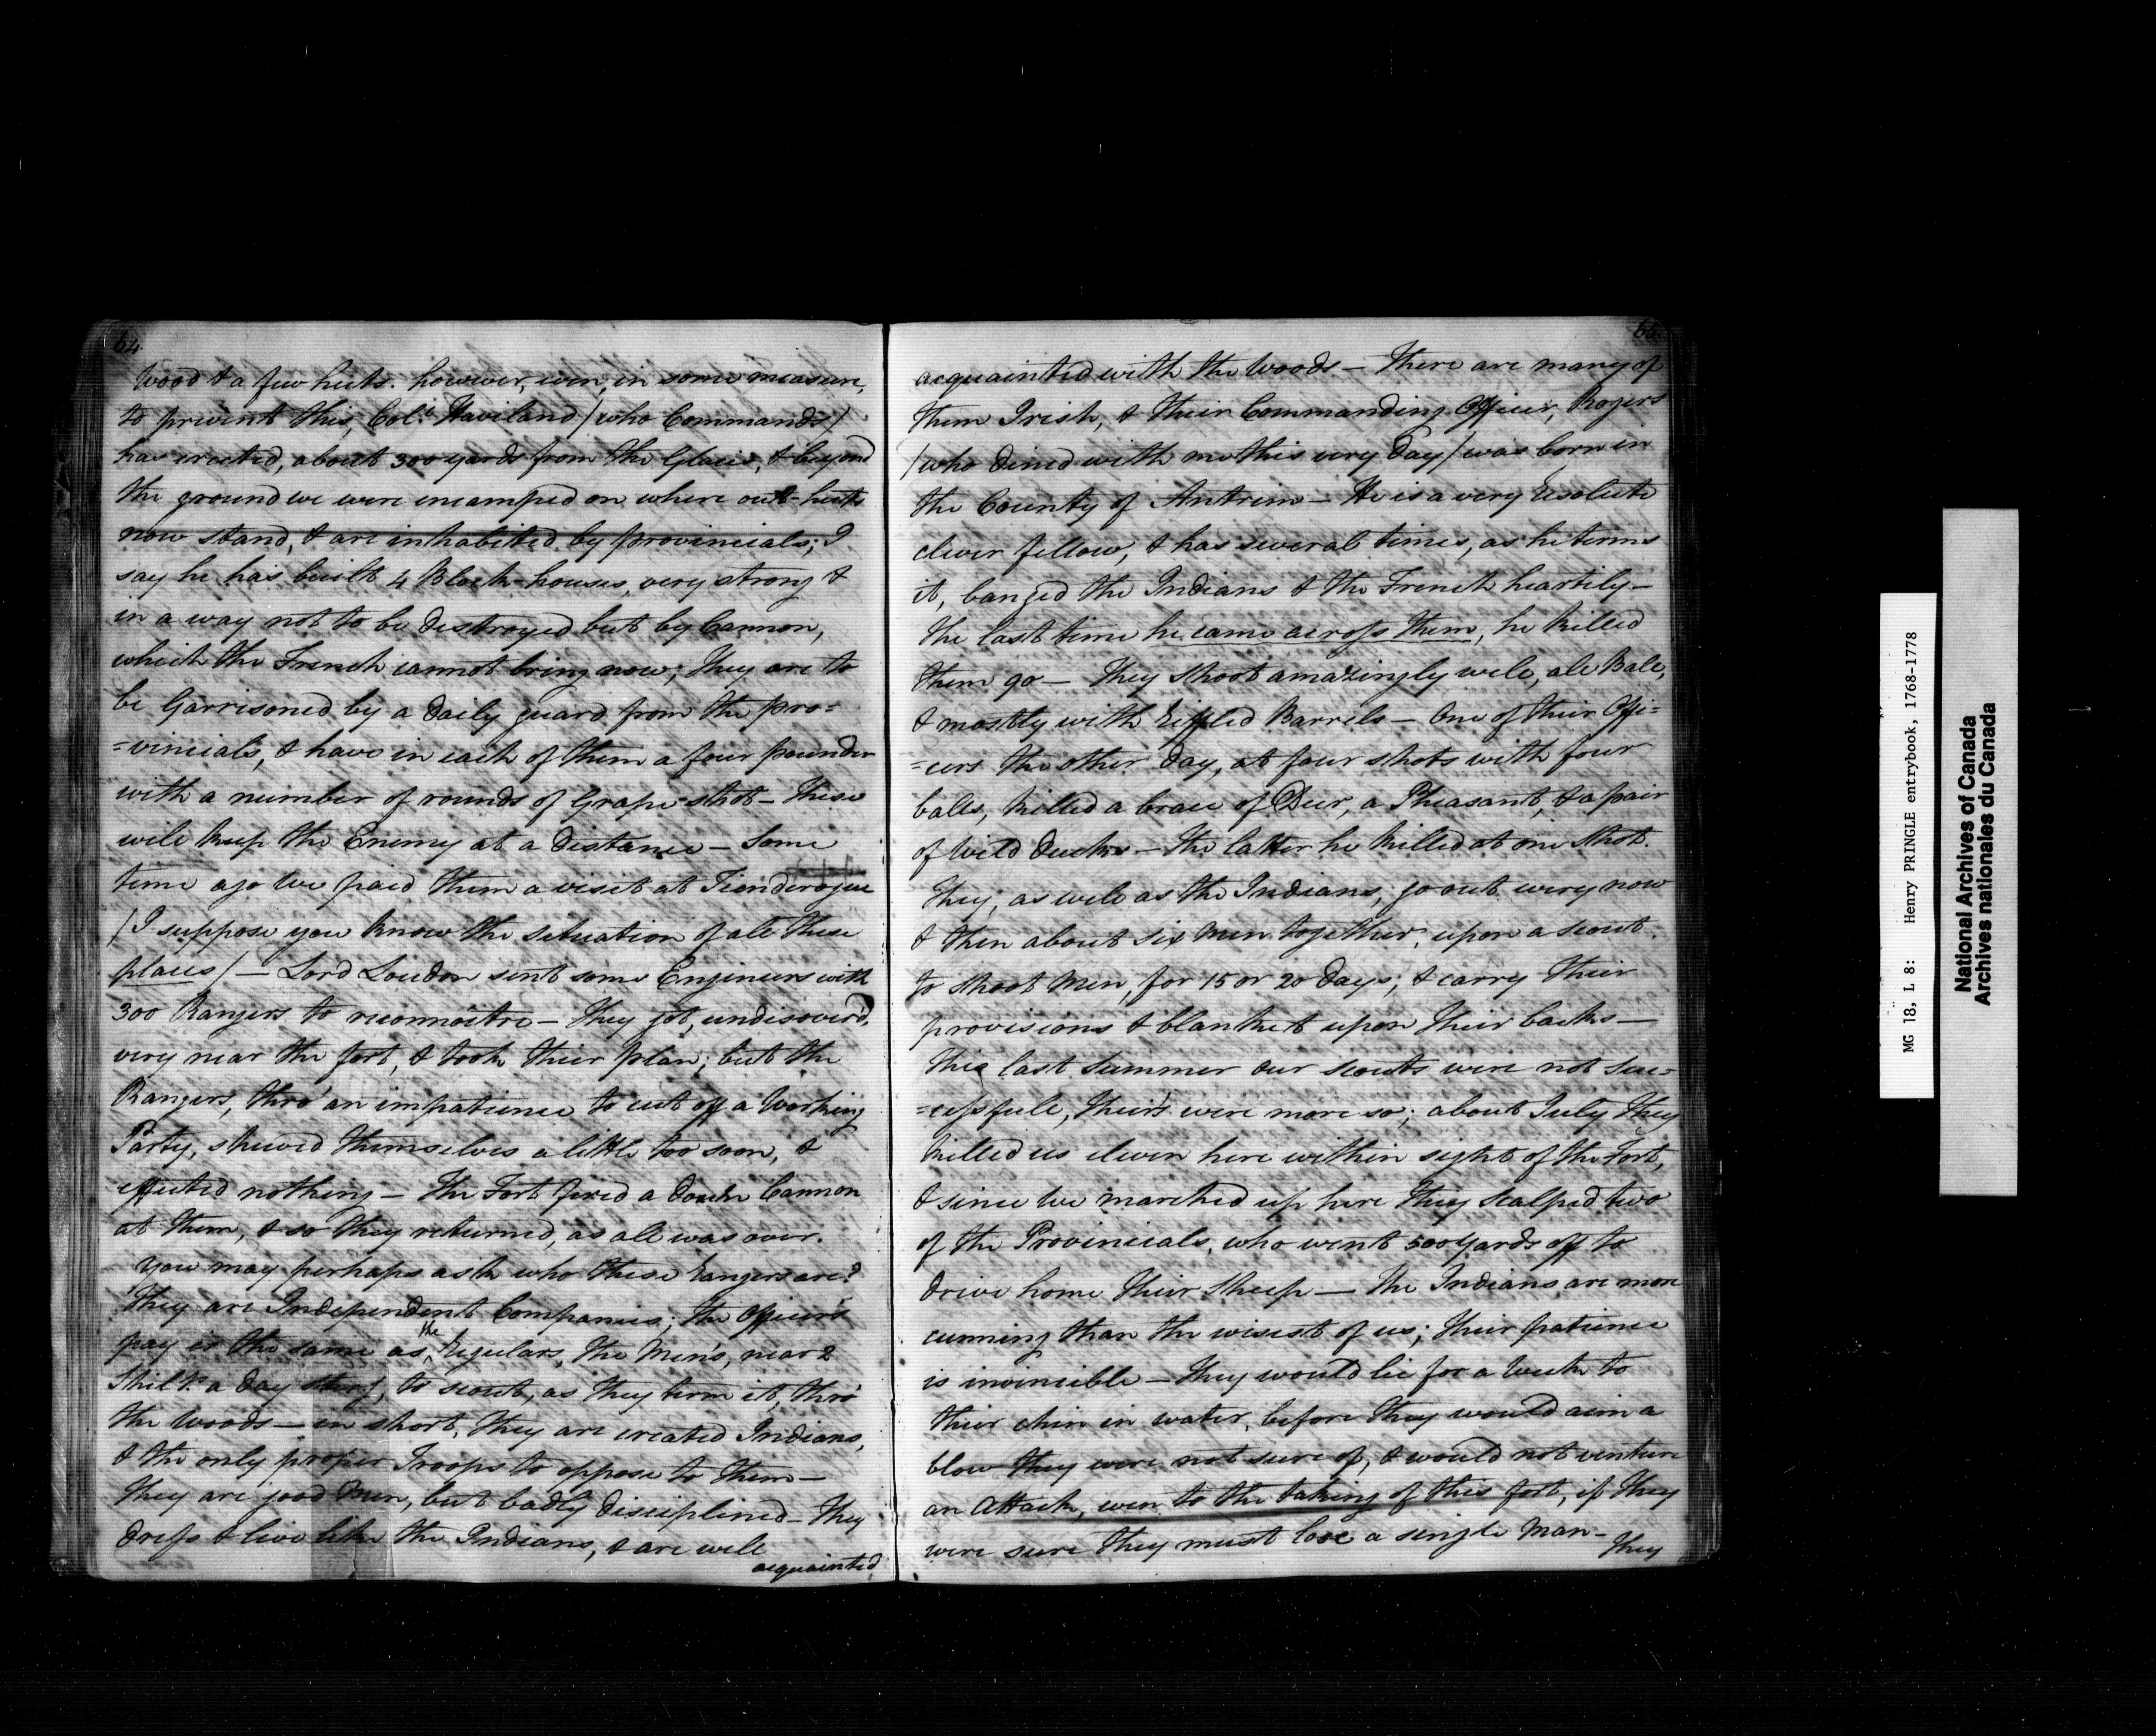 64.
Wood & a few huts. however, even, in some measure,
to prevent this, Col.º Haviland /who Commands/
has erected, about 300 yards from the Glacis, & beyond
the ground we were encamped on where out-huts
now stand, & are inhabited by provincials; I
say he has built 4 Block-houses, very strong &
in a way not to be destroyed but by Cannon,
which the French cannot bring now; They are to
be Garrisoned by a Daily guard from the pro=
=vincials, & have in each of them a four pounder
with a number of rounds of Grape-shot – These
will keep the Enemy at a Distance – Some
time ago We paid them a visit at Tienderogue
/I suppose you know the situation of all these
places/ – Lord Loudon sent some Engineers with
300 Rangers to reconnoitre – They got, undisover'd,
very near the fort, & took their plan; but the
Rangers, thro' an impatience to cut off a Working
Party, shewed themselves a little too soon, &
effected nothing – The Fort fired a Cannon
at them, & so they returned, as all was over.
You may perhaps ask who these Rangers are?
They are Independent Companies; the Officers
pay is the same as the Regulars, the Men's, near 2
Shill.s a Day Ster.g, to scout, as they term it, thro'
the Woods – in short, they are created Indians,
& the only proper Troops to oppose to them –
They are good Men, but badly Disciplined – They
Dress & live like the Indians, & are well
acquainted
65.
acquainted with the Woods – There are many of
them Irish, & their Commanding Officer, Rogers
/who Dined with me this very Day/ was born in
the County of Antrim – He is a very Resolute
clever fellow, & has several times, as he terms
it, banged the Indians & the French heartily –
The last time he came across them, he killed
them 90 – They shoot amazingly well, all Ball,
& mostly with Riffled Barrels – One of their Offi=
=cers the other Day, at four shots with four
balls, killed a brace of Deer, a Pheasant, & a pair
of Wild Ducks – The latter he killed at one Shot.
They, as well as the Indians, go out every now
& then about six Men together, upon a scout
to Shoot Men, for 15 or 20 Days; & carry their
provisions & blanket upon their backs –
This last Summer our scouts were not suc=
=cessfull, theirs were more so; about July they
killed us eleven here within sight of the Fort,
& since We marched up here they scalped two
of the Provincials, who went 500 yards off to
Drive home their Sheep – The Indians are more
cunning than the wisest of us; their patience
is invincible – They would lie for a Week to
their chin in water, before they would aim a
blow they were not sure of, & would not venture
an Attack, even to the taking of this fort, if they
were sure they must lose a single Man –
They
MG 18, L 8: Henry PRINGLE entrybook, 1768-1778
National Archives of Canada
Archives nationales du Canada